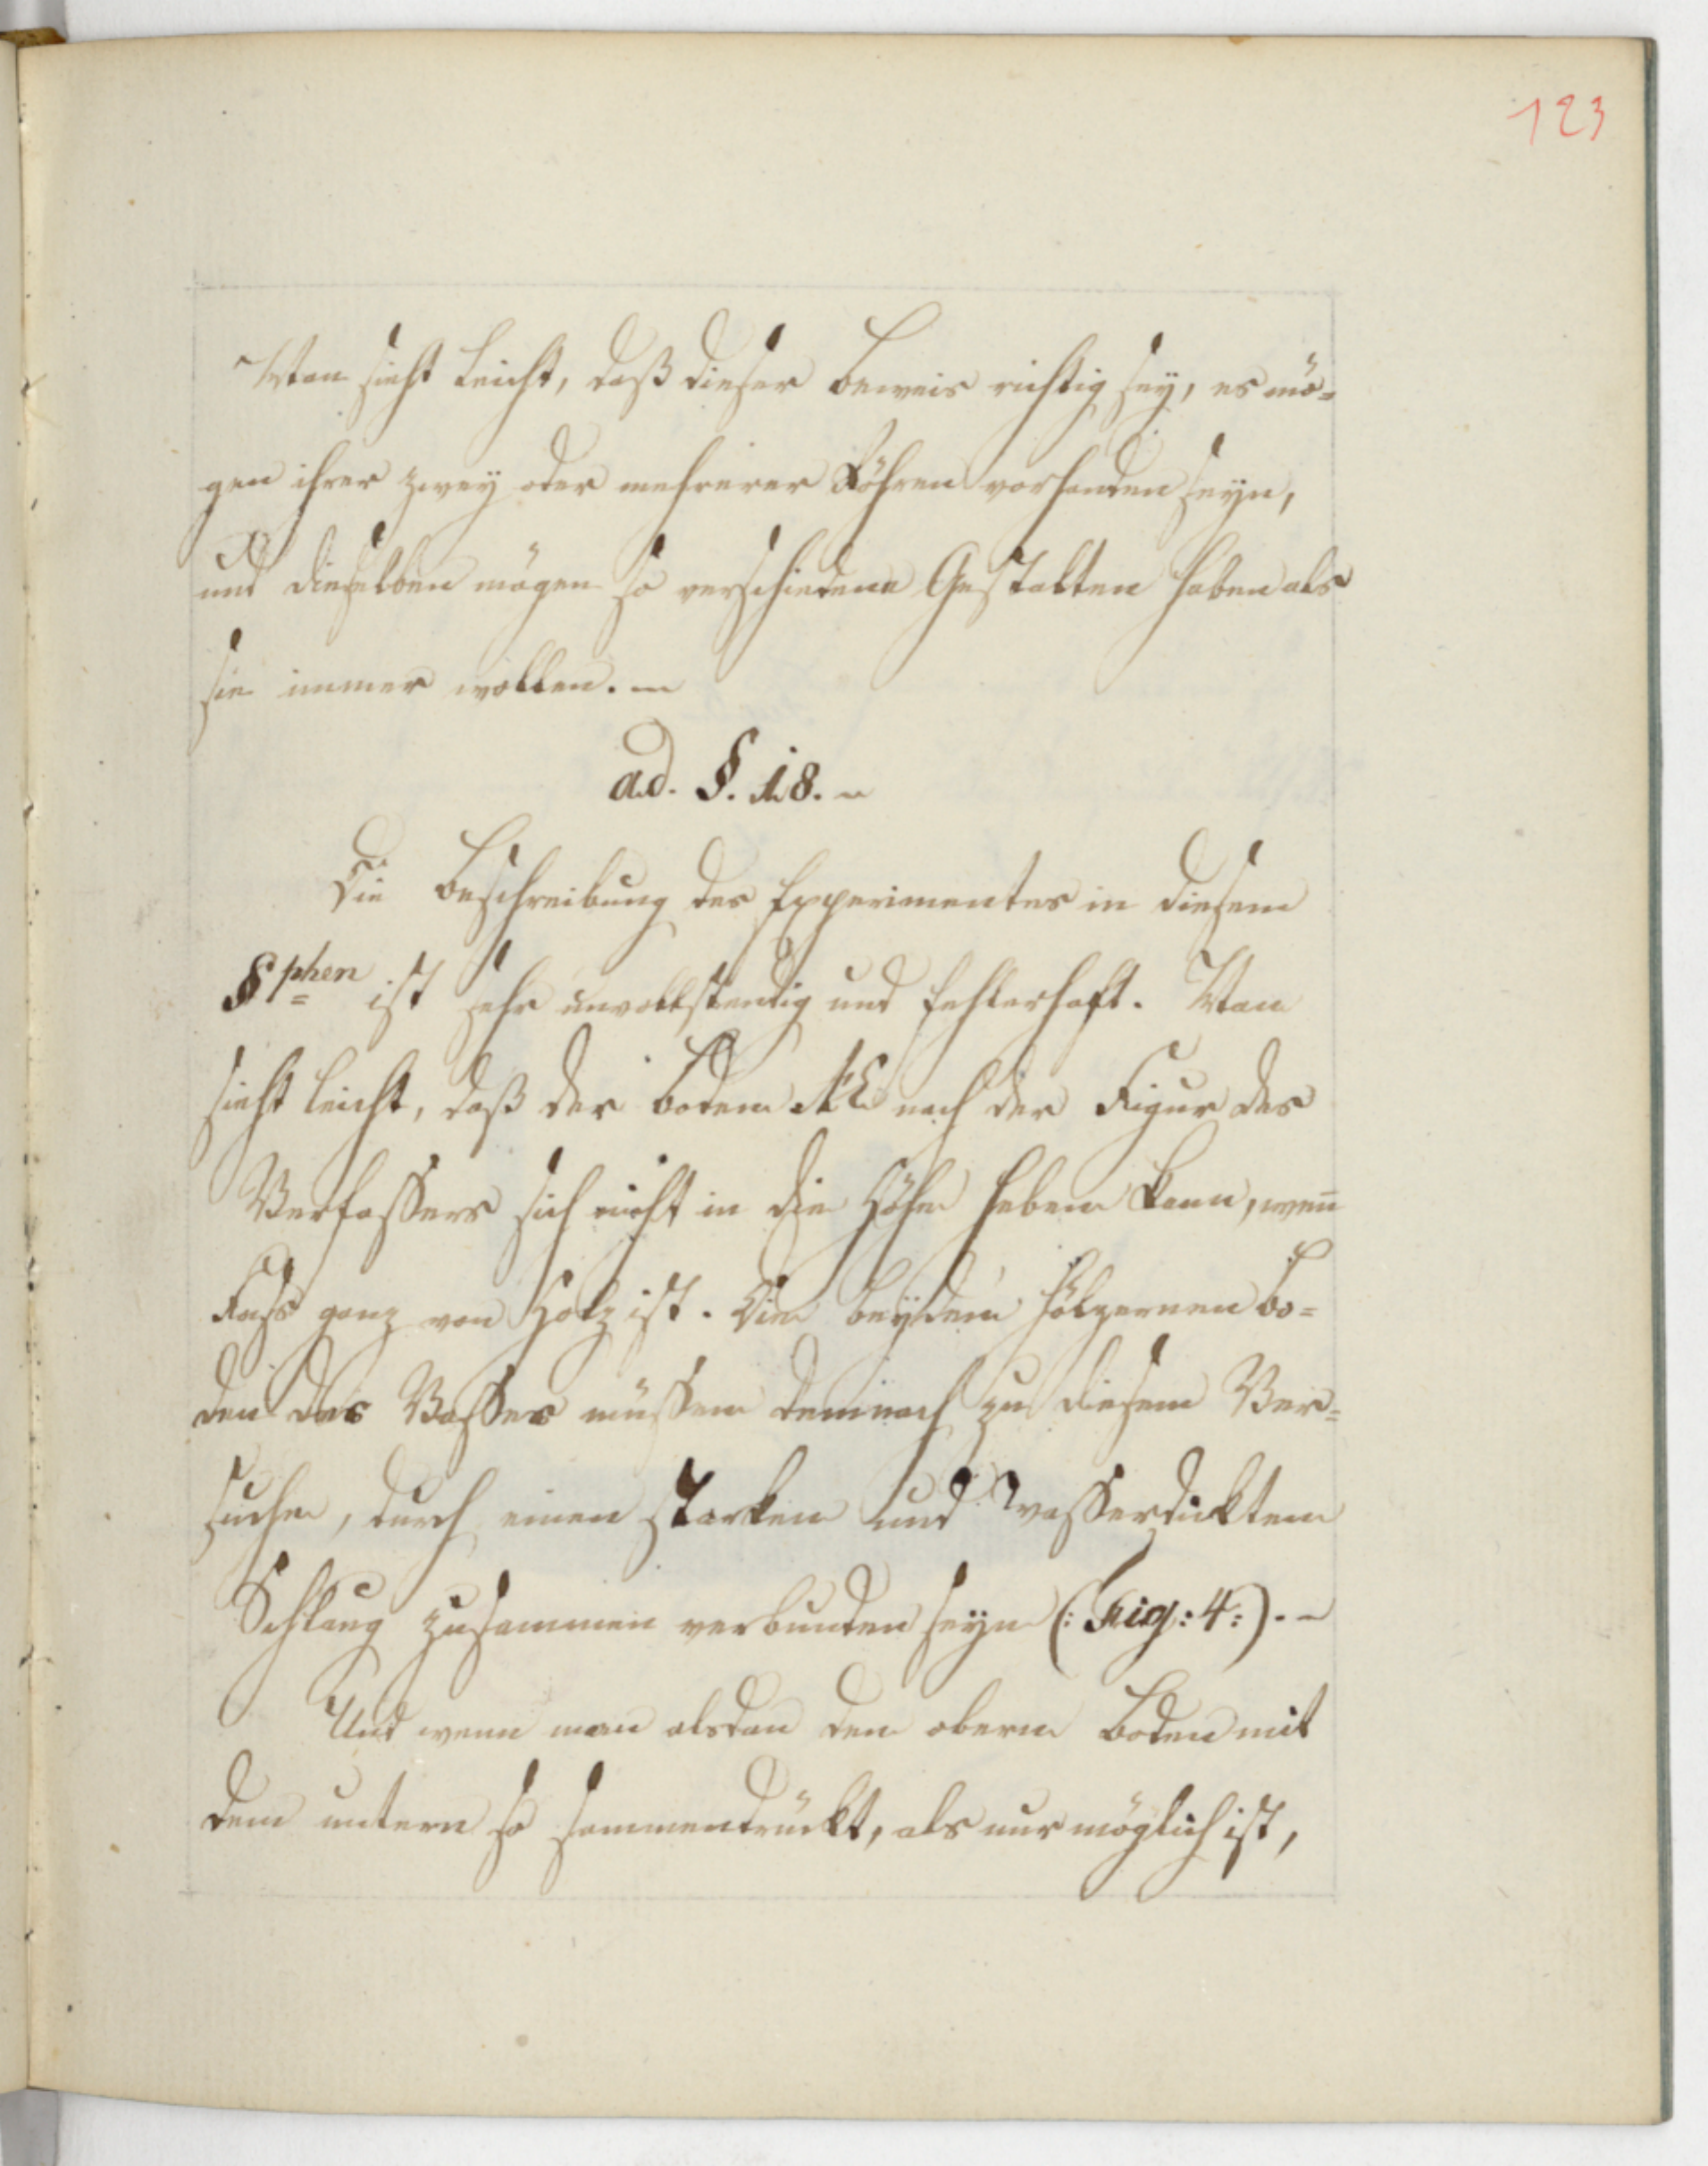 123
Man sieht leicht, daß dieser Beweis richtig sey, es mö=
gen ihrer zwey oder mehrerer Röhren vorhanden seyn,
und dieselben mögen so verschiedene Gestalten haben als
sie immer wollen. –
ad. §. 18. –
Die Beschreibung des Experimentes in diesem
§phen ist sehr unvollstendig und fehlerhaft. Man
sieht leicht, daß der Boden nach der Figur des
Verfassers sich nicht in die Höhe heben kann, weñ
Fass ganz von Holz ist. Die beyden hölzernen Bo=
den des Vasses müssen demnach zu diesem Ver=
suche, durch einen starken und wasserdickten
Schlaug zusammen verbunden seyn (: Fig: 4:). –
Und wenn man alsdan den obern Boden mit
dem untern so sammendrückt, als nur möglich ist,